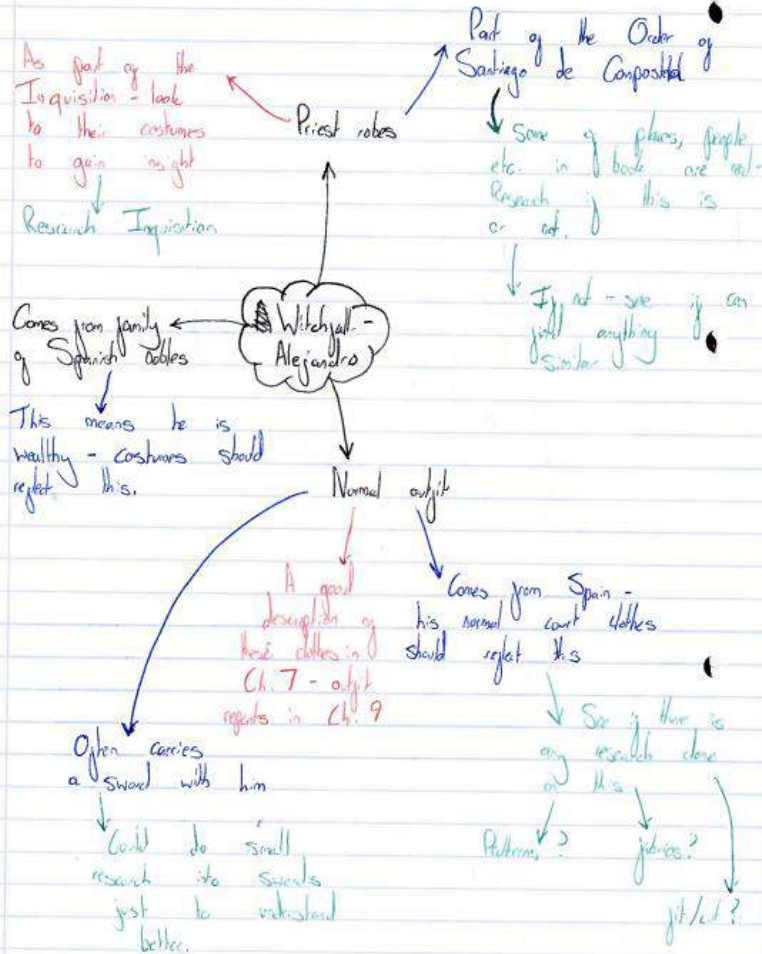 Witchfall -
Alejandro
Priest robes
As part of the
Inquisition - look
to their costumes
to gain insight
Research Inquisition
Part of the Order of
Santiago de Compostela
Some of places, people,
etc. in book are real -
Research if this is
or not.
If not - see if can
find anything
similar
Comes from family
of Spanish nobles
This means he is
wealthy - costumes should
reflect this.
Normal outfit
A good
description of
these clothes in
Ch. 7 - outfit
repeats in Ch. 9
Comes from Spain -
his normal court clothes
should reflect this
See if there is
any research done
on this
Patterns?
fabrics?
fit/cut?
Often carries
a sword with him
Could do small
research into swords
just to understand
better.